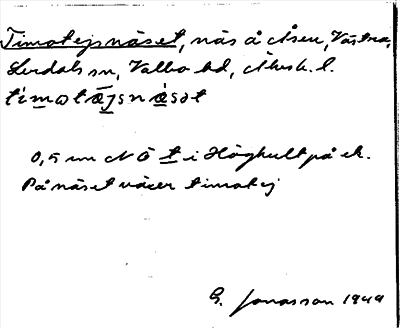 Timotejsnäset, näs å Åsen, Västra,
Lerdals sn, Valbo hd, Älvsb. l.
tìmotæ̅jsnæ̀sət
0,5 mm N Ö t i Höghult på ek.
På näset växer timotej
G. Jonasson 1949